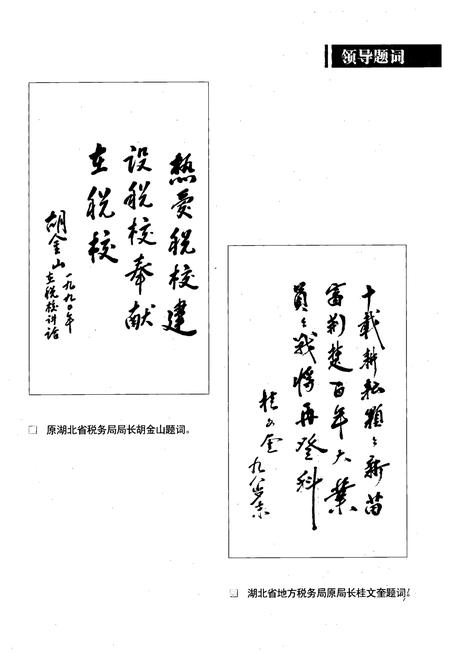 领导题词
热爱税校建
设税校奉献
在税校
胡金山一九九〇年
在税校讲话
原湖北省税务局局长胡金山题词。
十载耕耘颗颗新苗
富荆楚百年大业
员员战将再登科
桂文奎九八岁末
湖北省地方税务局原局长桂文奎题词